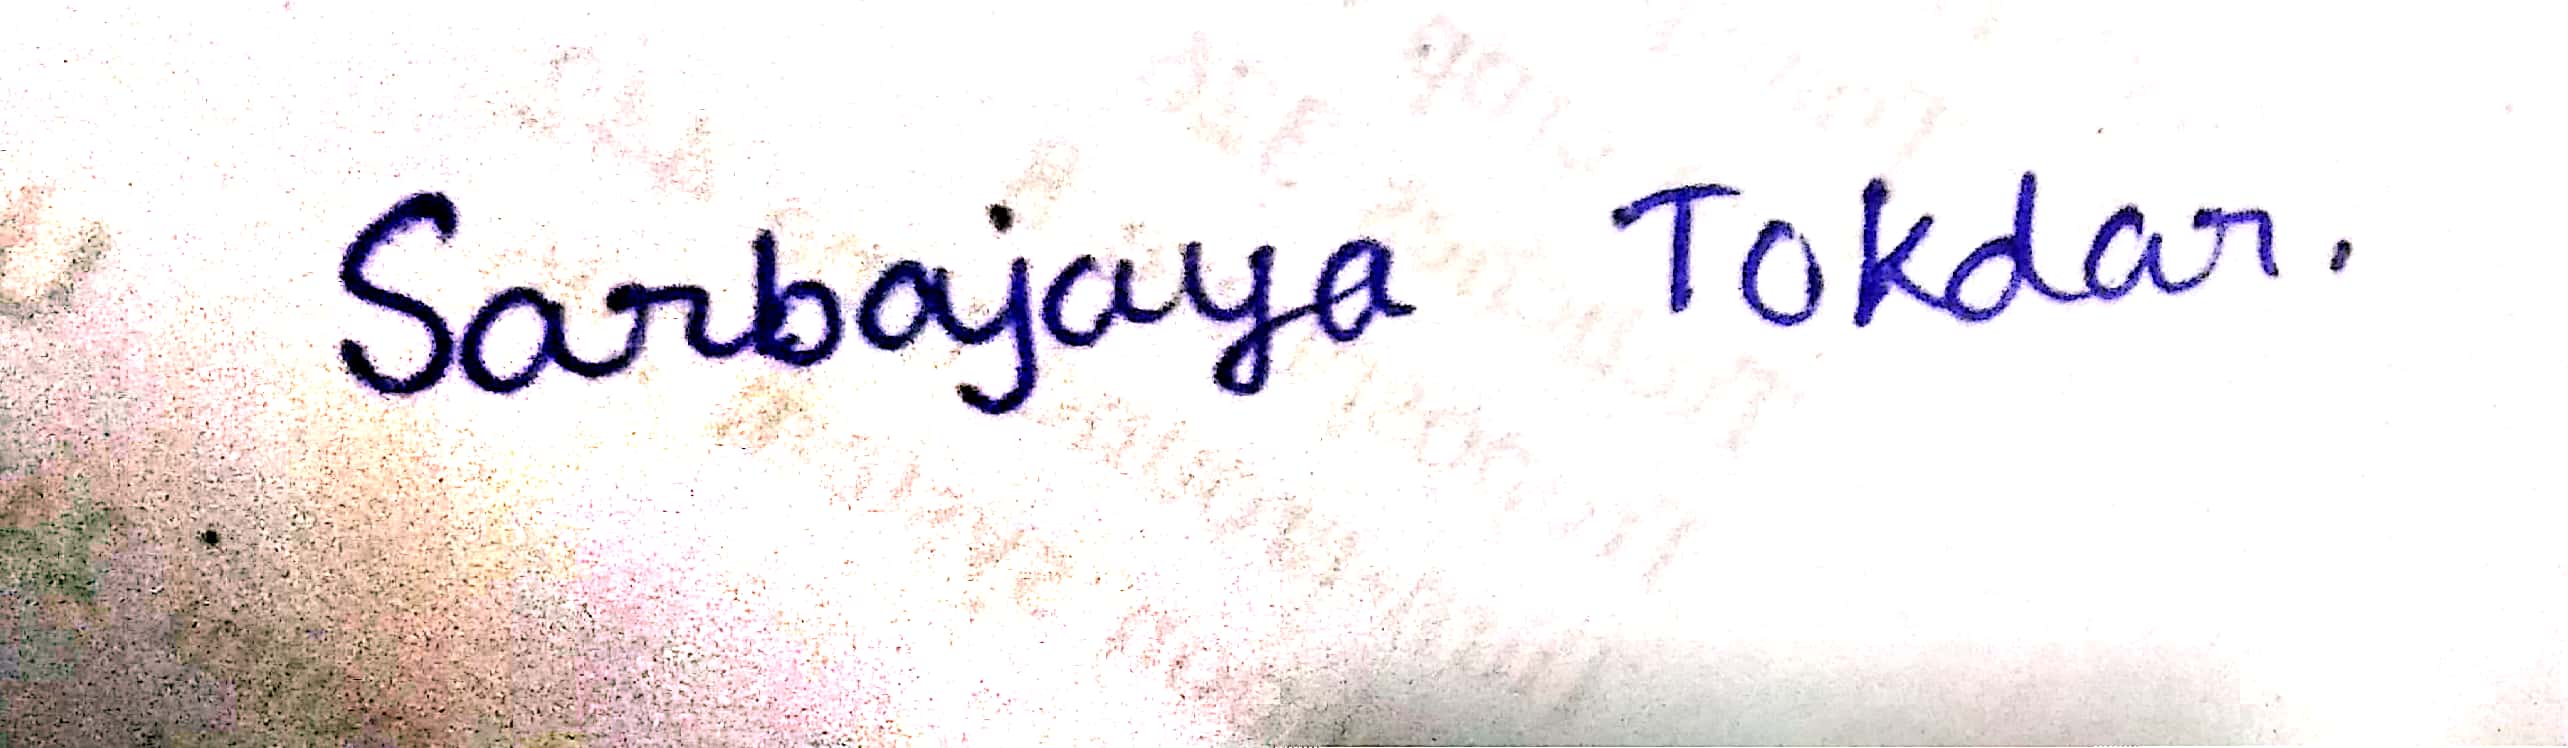 Sarbajaya Tokdar.